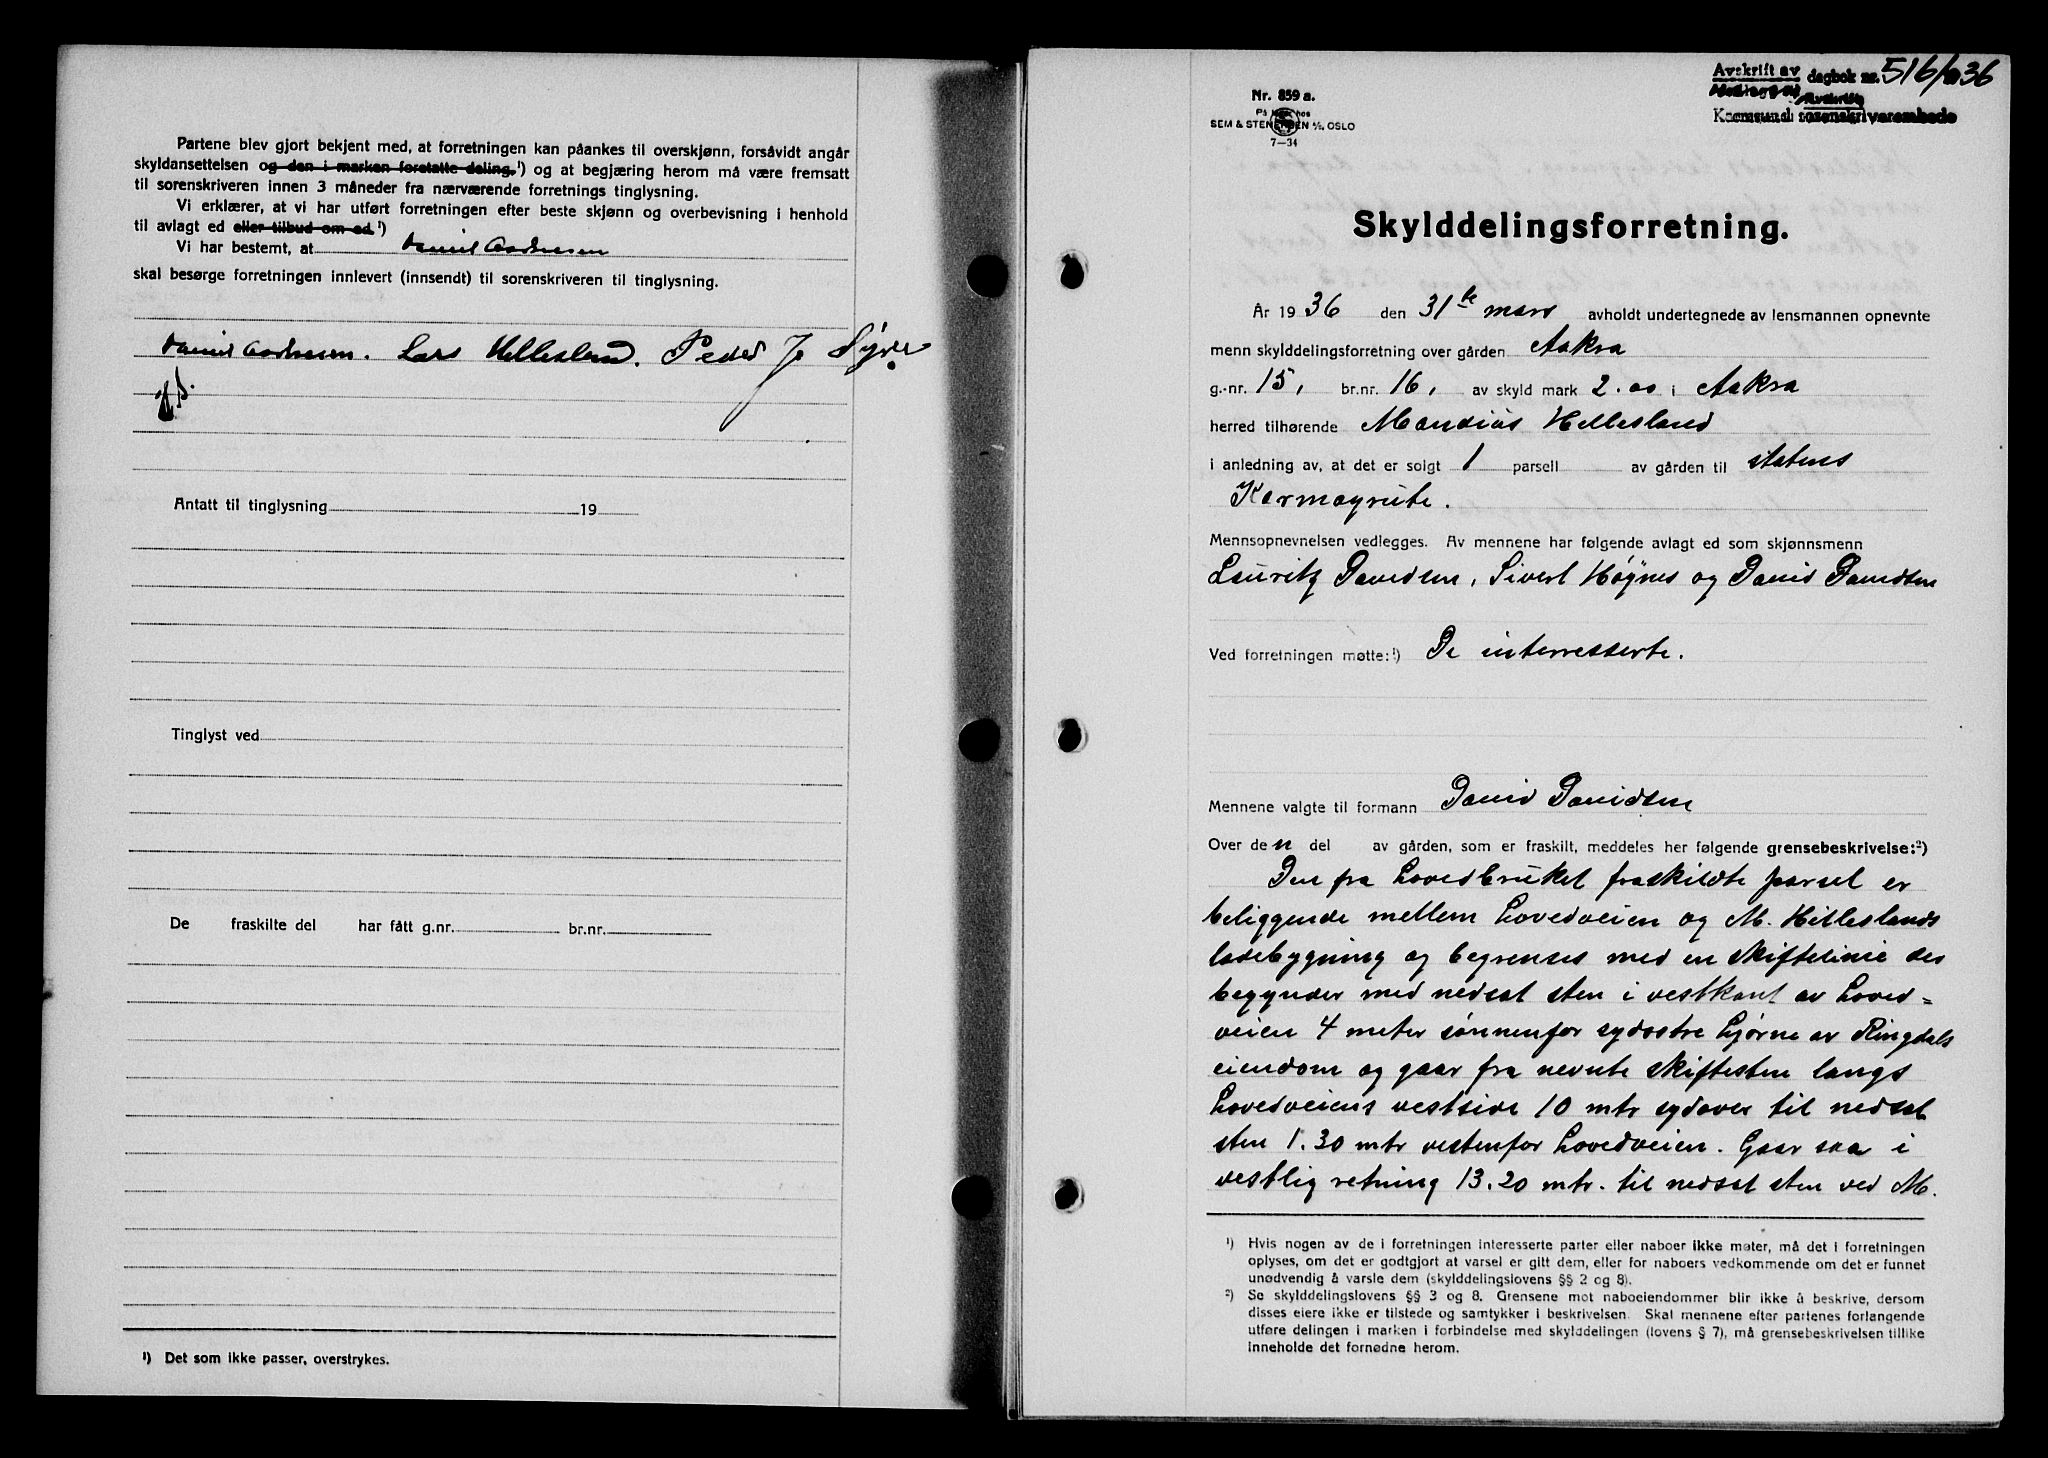 Partene blev gjort bekjent med, at forretningen kan påankes til overskjønn, forsåvidt angår
skyldansettelsen og den i marken foretatte deling.¹) og at begjæring herom må være fremsatt
til sorenskriveren innen 3 måneder fra nærværende forretnings tinglysning.
Vi erklærer, at vi har utført forretningen efter beste skjønn og overbevisning i henhold
til avlagt ed eller tilbud om ed.¹)
Vi har bestemt, at Daniel Andresen
skal besørge forretningen innlevert (innsendt) til sorenskriveren til tinglysning.
Daniel Andresen. Lars Hellesland. Peder J
Antatt til tinglysning 19
Tinglyst ved
De fraskilte del har fått g.nr. br.nr.
¹) Det som ikke passer, overstrykes.
Avskrift av dagbok nr. 516/1936
Karmsund sorenskriverembede
Nr. 859 a.
På lager hos
SEM & STENERSEN A/S, OSLO
7—34
Skylddelingsforretning.
År 1936 den 31te mars avholdt undertegnede av lensmannen opnevnte
menn skylddelingsforretning over gården Aakra
g.-nr. 15, br.nr. 16, av skyld mark 2.00 i Aakra
herred tilhørende Mandius Hellesland
i anledning av, at det er solgt 1 parsell av gården til statens
Karmøyrute.
Mennsopnevnelsen vedlegges. Av mennene har følgende avlagt ed som skjønnsmenn
Lauritz Davidsen, Sivert Høynes og David Davidsen
Ved forretningen møtte:¹) De interresserte.
Mennene valgte til formann David Davidsen
Over den del av gården, som er fraskilt, meddeles her følgende grensebeskrivelse:²)
Den fra Hovedbruket fraskildte parsel er
beliggende mellem Hovedveien og M. Hilleslands
ladebygning og begrenses med en skiftelinie der
begynder med nedsat sten i vestkant av Hoved=
veien 4 meter sønnenfor sydøstre hjørne av Ringdals
eiendom og gaar fra nevnte skiftesten langs
Hovedveiens vestside 10 mtr sydover til nedsat
sten 1.30 mtr vestenfor Hovedveien. Gaar saa i
vestlig retning 13.20 mtr. til nedsat sten ved M.
¹) Hvis nogen av de i forretningen interesserte parter eller naboer ikke møter, må det i forretningen
oplyses, om det er godtgjort at varsel er gitt dem, eller for naboers vedkommende om det er funnet
unødvendig å varsle dem (skylddelingslovens §§ 2 og 8).
²) Se skylddelingslovens §§ 3 og 8. Grensene mot naboeiendommer blir ikke å beskrive, dersom
disses eiere ikke er tilstede og samtykker i beskrivelsen. Skal mennene efter partenes forlangende
utføre delingen i marken i forbindelse med skylddelingen (lovens § 7), må grensebeskrivelsen tillike
inneholde det fornødne herom.